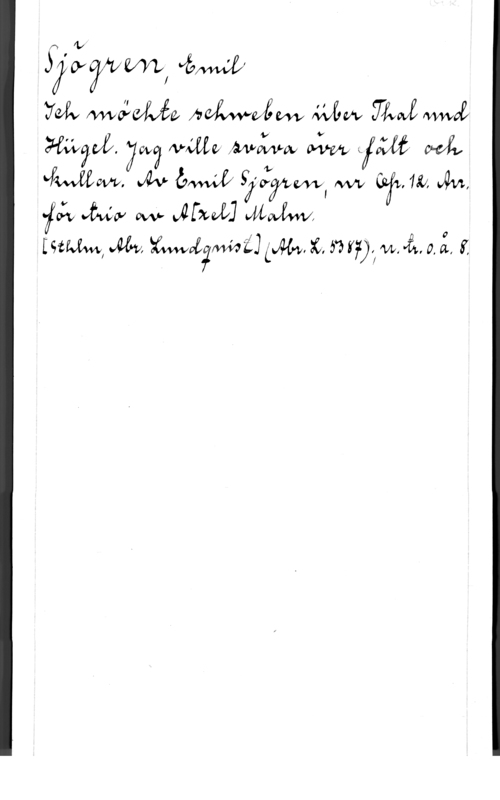 Sjögren, Emil
Ich möchte schweben über Thal und
Hügel. Jag ville sväva över fält och
kullar. Av Emil Sjögren, ur Op. 12. Arr.
för trio av A[xel] Malm.
[Sthlm, Abr. Lundquist] (Abr. L. 5387); u. tr. o. å. 8.